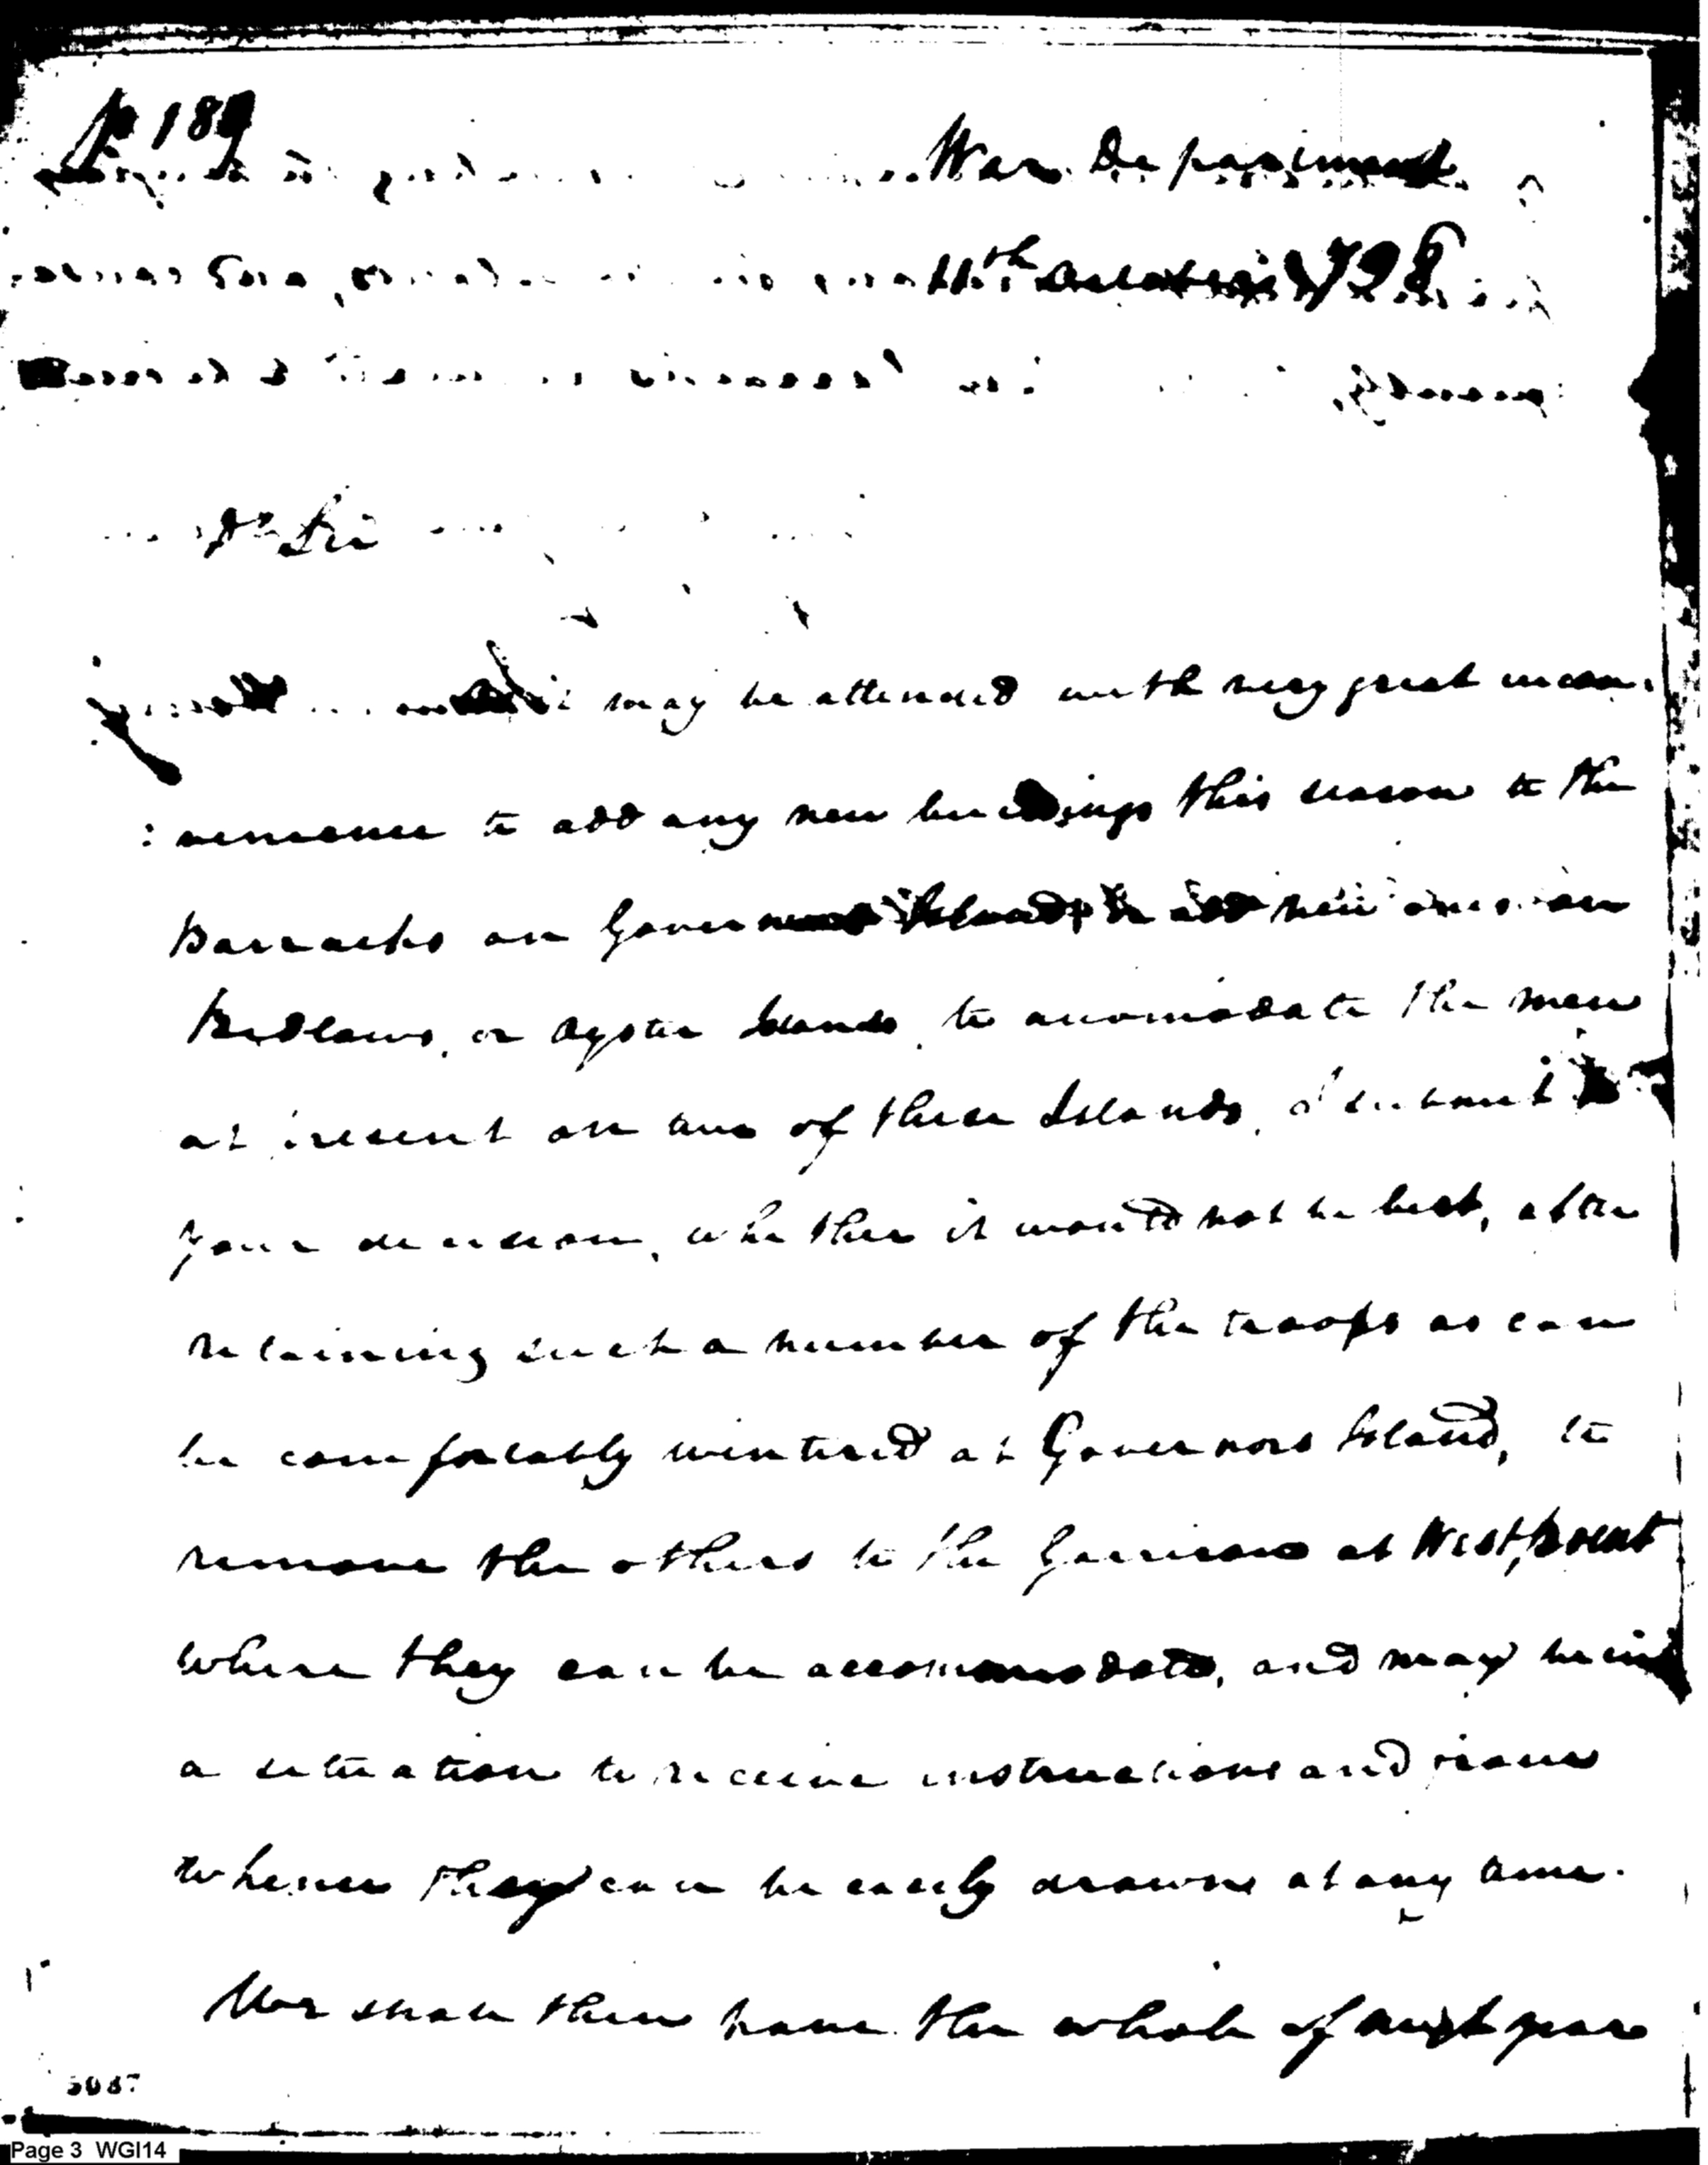 p 189
War Department
11th October 1798
Dr Sir
it may be attended with very great incon:
:venience to add any new buildings this season to the
Barracks on Governors Island, or add new ones on
Bedlows, or Oyster Islands to accomodate the men
at present on one of these Islands, I submit to
your decision, whether it would not be best, after
retaining such a number of the troops as can
be comfortably wintered at Governors Island, to
remove the others to the Garrison at Westpoint
where they can be accommodated, and may be in
a situation to receive instructions and from
whence they can be easily drawn at any time.
We shall then have the whole of next year
5087
Page 3 WGI14